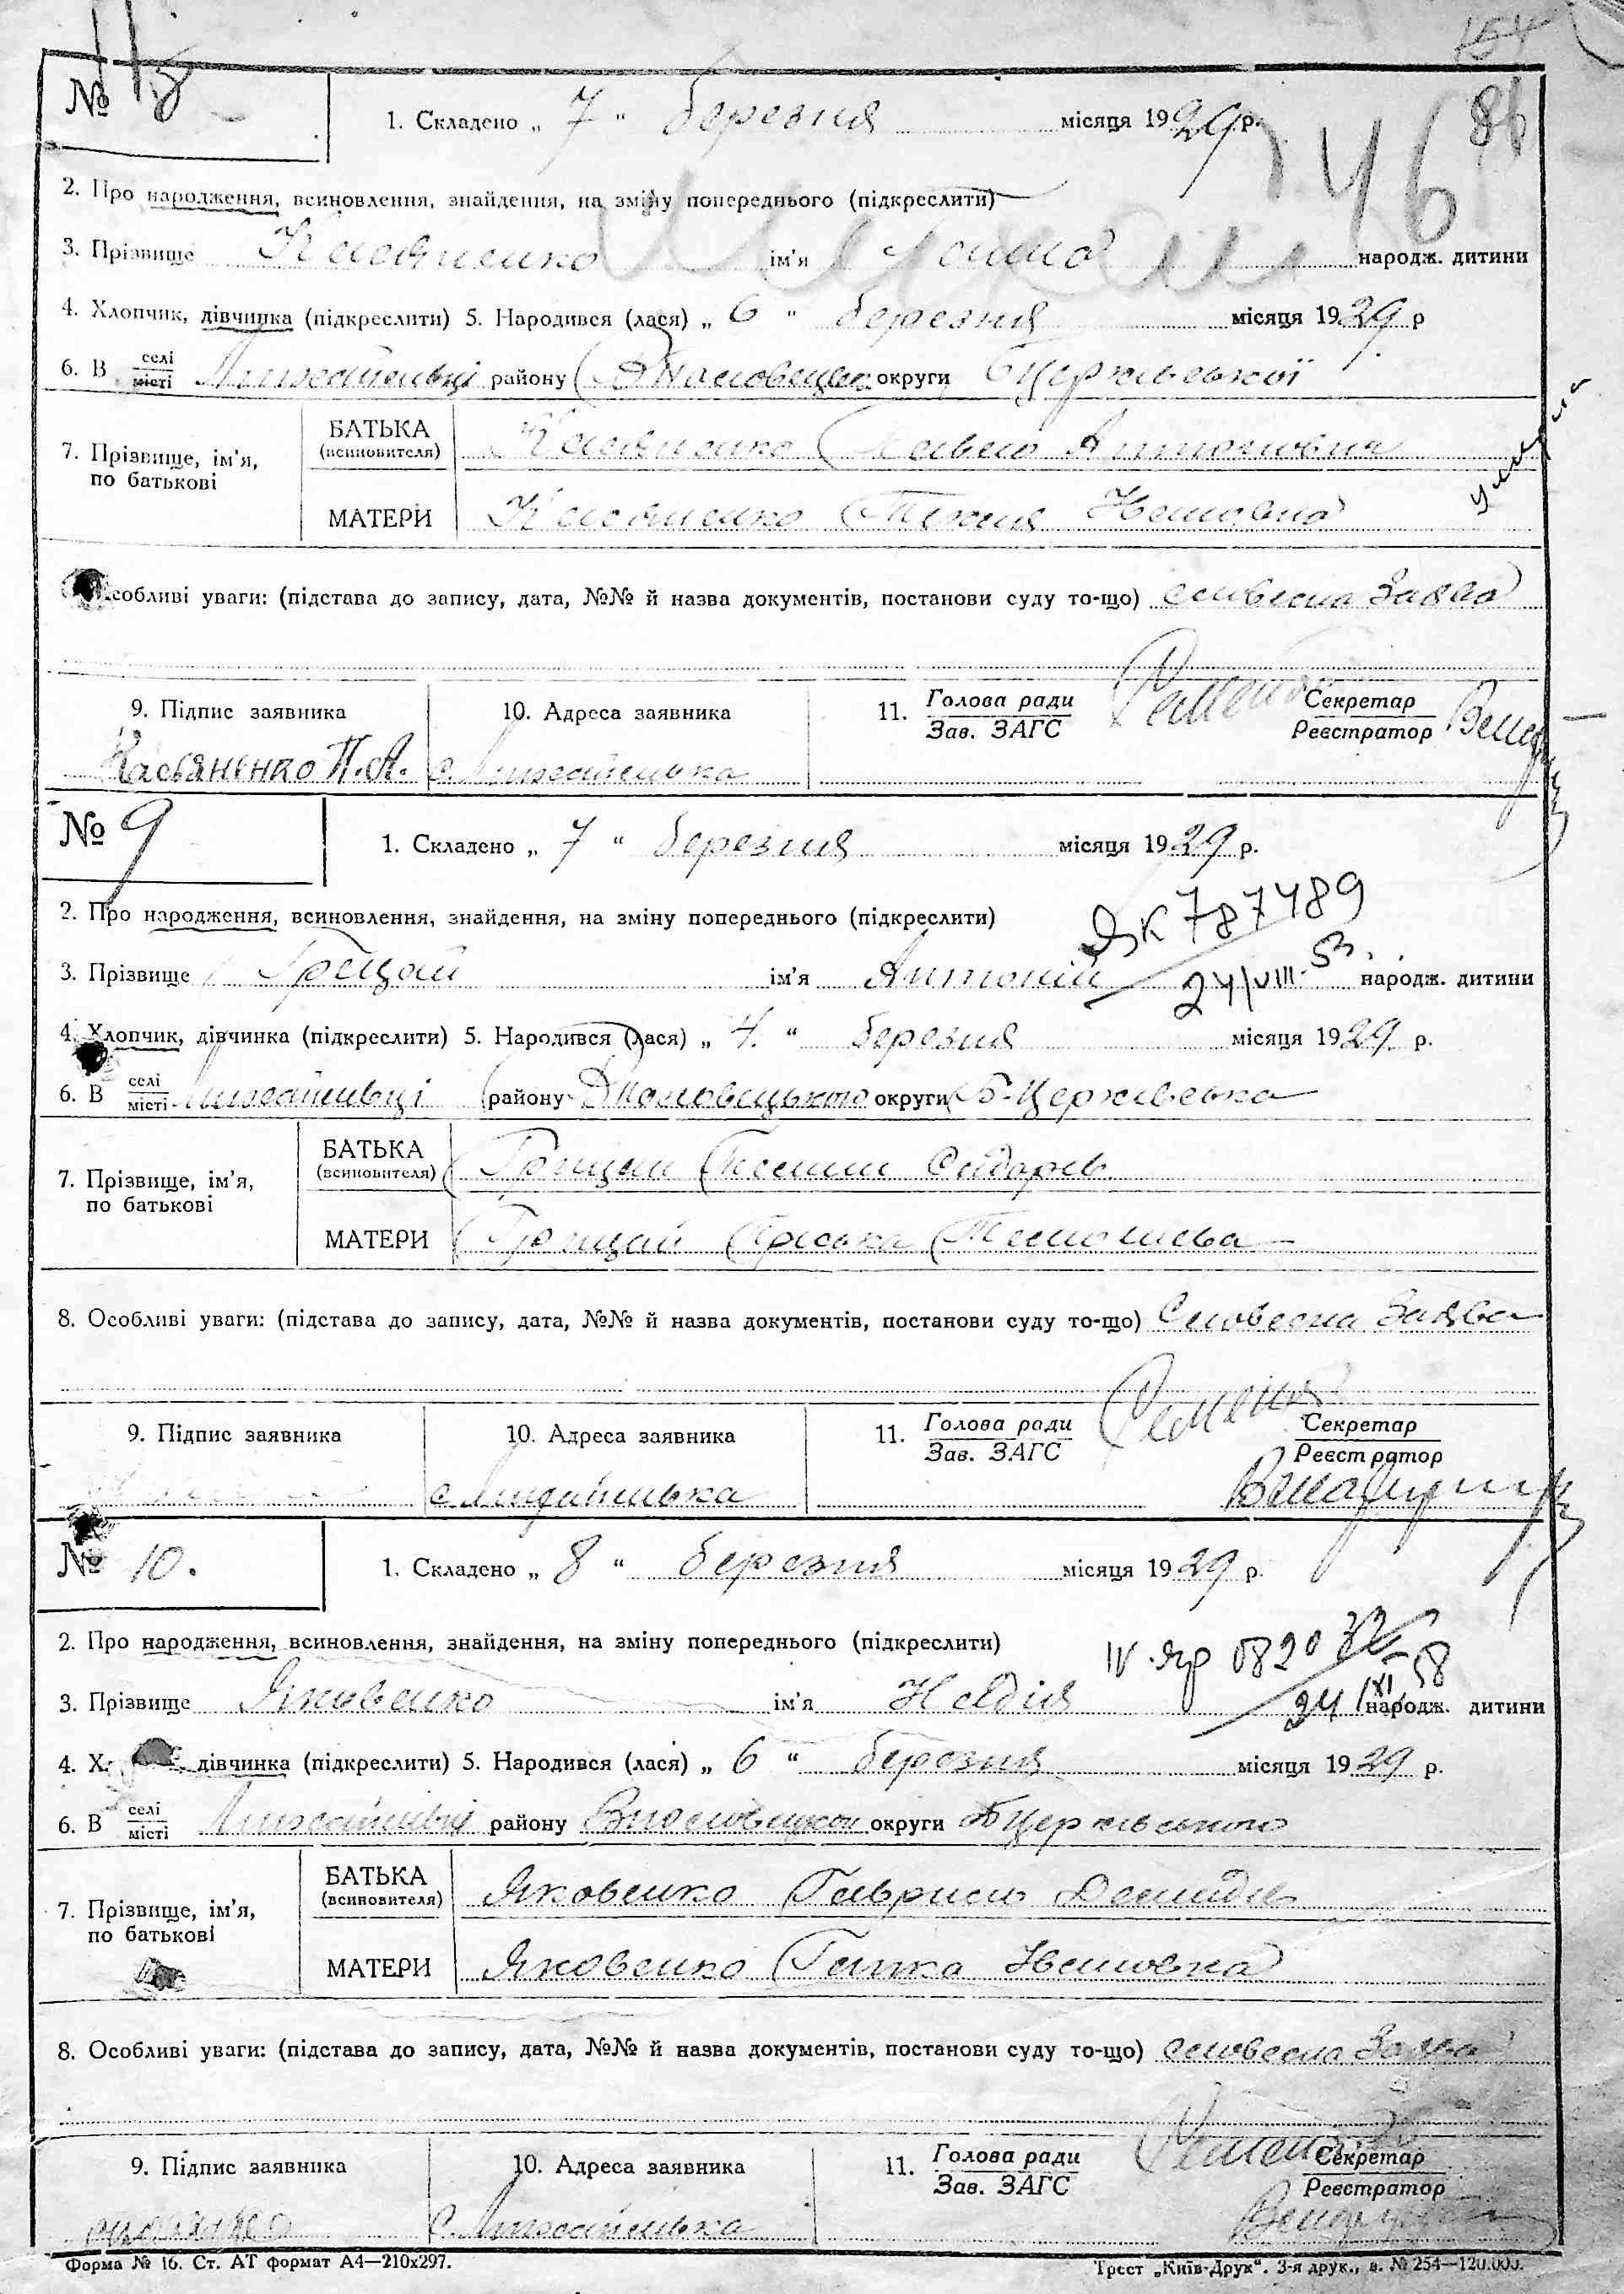 154
86
№ 8
1. Складено „ 7 " березня місяця 1929 р.
146
2. Про народження, всиновлення, знайдення, на зміну попереднього (підкреслити)
3. Прізвище Касяненко ім'я народж. дитини
4. Хлопчик, дівчинка (підкреслити) 5. Народився (лася) „ 6 " березня місяця 1929 р
6. В селі місті району округи Бцерківської
7. Прізвище, ім'я, по батькові
БАТЬКА (всиновителя) Касяненко Антонович
МАТЕРИ Касяненко Текля
умерла
собливі уваги: (підстава до запису, дата, №№ й назва документів, постанови суду то-що) словесна Заява
9. Підпис заявника 10. Адреса заявника 11. Голова ради Зав. ЗАГС Секретар Реєстратор
Касьяненко П.А. с.
№ 9
1. Складено „ 7 " березня місяця 1929 р.
2. Про народження, всиновлення, знайдення, на зміну попереднього (підкреслити)
ЯК 787489
3. Прізвище Грицай ім'я Антоній 24/VIII-53. народж. дитини
4. Хлопчик, дівчинка (підкреслити) 5. Народився (лася) „ 4. " березня місяця 1929 р.
6. В селі місті району округи Б-Церківська
7. Прізвище, ім'я, по батькові
БАТЬКА (всиновителя) Грицай Сидорів
МАТЕРИ Грицай
8. Особливі уваги: (підстава до запису, дата, №№ й назва документів, постанови суду то-що) Словесна Заява
9. Підпис заявника 10. Адреса заявника 11. Голова ради Зав. ЗАГС Секретар Реєстратор
с.
№ 10.
1. Складено „ 8 " березня місяця 1929 р.
2. Про народження, всиновлення, знайдення, на зміну попереднього (підкреслити)
3. Прізвище Яковенко ім'я Надія 24/XI 58 народж. дитини
4. Х дівчинка (підкреслити) 5. Народився (лася) „ 6 " березня місяця 1929 р.
6. В селі місті району округи Бцерківського
7. Прізвище, ім'я, по батькові
БАТЬКА (всиновителя) Яковенко Гаврило Демидів
МАТЕРИ Яковенко Ганка
8. Особливі уваги: (підстава до запису, дата, №№ й назва документів, постанови суду то-що) словесна Заява
9. Підпис заявника 10. Адреса заявника 11. Голова ради Зав. ЗАГС Секретар Реєстратор
с.
Форма № 16. Ст. АТ формат А4—210х297. Трест „Київ-Друк". 3-я друк., в. № 254—120.000.